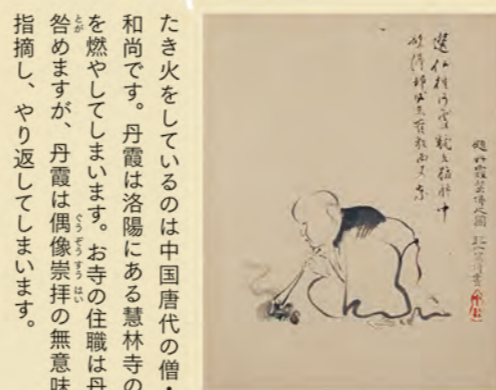 題丹霞焚佛之圖
たき火をしているのは中国唐代の僧・
和尚です。丹霞は洛陽にある慧林寺の
を燃やしてしまいます。お寺の住職は丹
とが
咎めますが、丹霞は偶像崇拝の無意味
ぐうぞうすうはい
指摘し、やり返してしまいます。